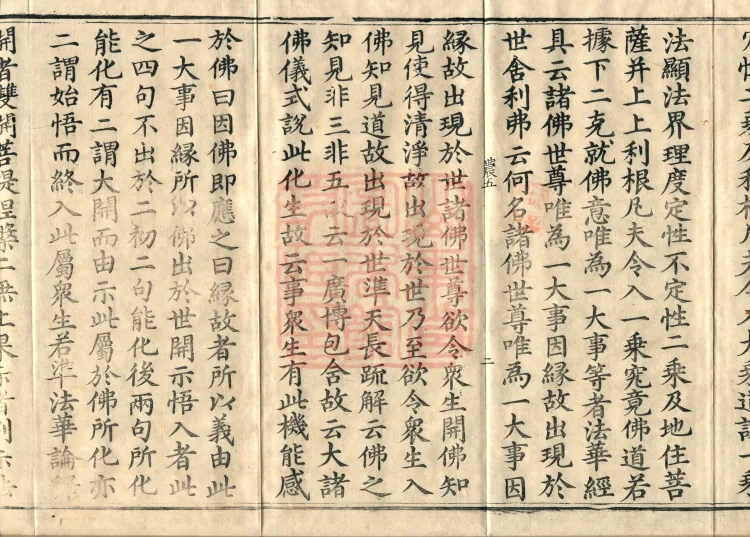 法顯法界理度定性不定性二乘及地住菩
薩并上上利根凡夫令入一乘究竟佛道若
據下二克就佛意唯為一大事等者法華經
具云諸佛世尊唯為一大事因緣故出現於
世舍利弗云何名諸佛世尊唯為一大事因
農五
二
緣故出現於世諸佛世尊欲令衆生開佛知
見使得清淨故出現於世乃至欲令衆生入
佛知見道故出現於世準天長疏解云佛之
知見非三非五故云一廣博包含故云大諸
佛儀式說此化生故云事衆生有此機能感
於佛曰因佛即應之曰緣故者所以義由此
一大事因緣所以佛出於世開示悟入者此
之四句不出於二初二句能化後兩句所化
能化有二謂大開而由示此屬於佛所化亦
二謂始悟而終入此屬衆生若準法華論釋
開者雙開菩提涅槃二無上果示者別示法